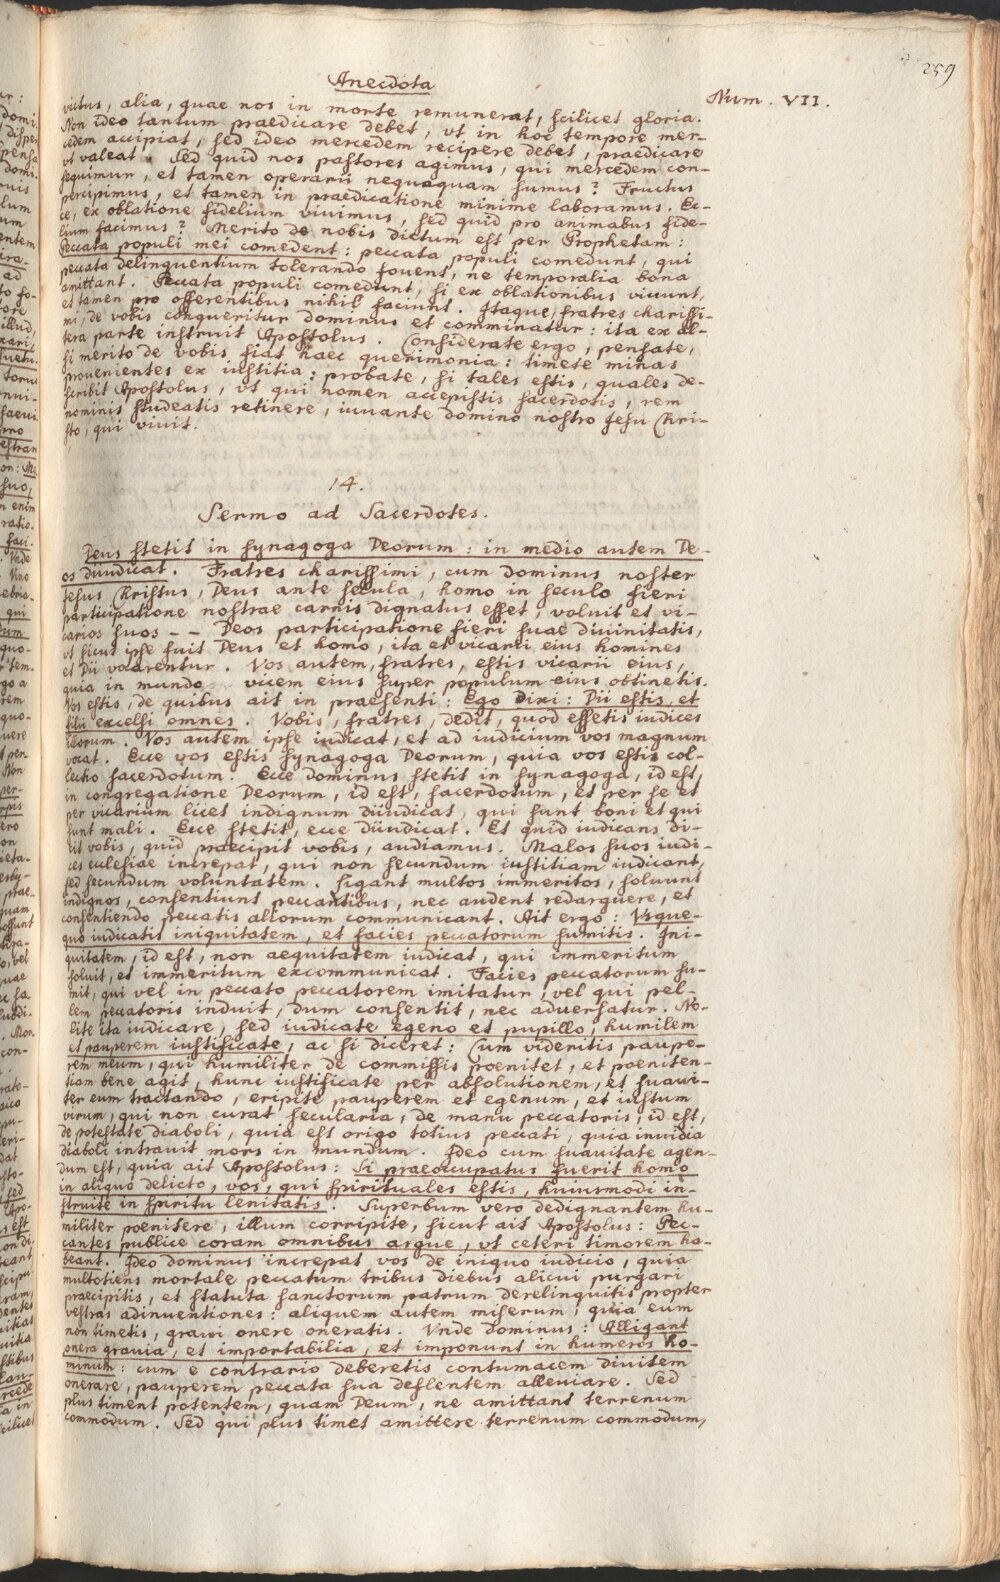 259
Anecdota
Num. VII.
victus, alia, quae nos in morte remunerat, scilicet gloria.
Non ideo tantum praedicare debet, vt in hoc tempore mer-
cedem accipiat, sed ideo mercedem recipere debet, praedicare
vt valeat. Sed quid nos pastores agimus, qui mercedem con-
sequimur, et tamen operarii nequaquam sumus? Fructus
percipimus, et tamen in praedicatione minime laboramus. Ec-
ce, ex oblatione fidelium viuimus, sed quid pro animabus fide-
lium facimus? Merito de nobis dictum est per Prophetam:
Peccata populi mei comedent: peccata populi comedunt, qui
peccata delinquentium tolerando fouent, ne temporalia bona
amittant. Peccata populi comedunt, si ex oblationibus viuunt,
et tamen pro offerentibus nihil faciunt. Itaque, fratres charissi-
mi, de vobis conqueritur dominus et comminatur: ita ex al-
tera parte instruit Apostolus. Considerate ergo, pensate,
si merito de vobis fiat haec querimonia: timete minas
prouenientes ex iustitia: probate, si tales estis, quales de-
scribit Apostolus, vt qui nomen accepistis sacerdotis, rem
nominis studeatis retinere, iuuante domino nostro Jesu Chri-
sto, qui viuit.
14.
Sermo ad Sacerdotes.
Deus stetit in synagoga Deorum: in medio autem De-
os diiudicat. Fratres charissimi, cum dominus noster
Iesus Christus, Deus ante secula, homo in seculo fieri
participatione nostrae carnis dignatus esset, voluit et vi-
carios suos -- Deos participatione fieri suae diuinitatis,
vt sicut ipse fuit Deus et homo, ita et vicarii eius homines
et Dii vocarentur. Vos autem, fratres, estis vicarii eius,
quia in mundo vicem eius super populum eius obtinetis.
Vos estis, de quibus ait in praesenti: Ego dixi: Dii estis, et
filii excelsi omnes. Vobis, fratres, dedit, quod essetis iudices
illorum. Vos autem ipse iudicat, et ad iudicium vos magnum
vocat. Ecce vos estis synagoga Deorum, quia vos estis col-
lectio sacerdotum. Ecce dominus stetit in synagoga, id est,
in congregatione Deorum, id est, sacerdotum, et per se et
per vicarium licet indignum diiudicat, qui sunt boni et qui
sunt mali. Ecce stetit, ecce diiudicat. Et quid iudicans di-
cit vobis, quid praecipit vobis, audiamus. Malos suos iudi-
ces ecclesiae increpat, qui non secundum iustitiam iudicant,
sed secundum voluntatem. Ligant multos immeritos, soluunt
indignos, consentiunt peccantibus, nec audent redarguere, et
consentiendo peccatis aliorum communicant. Ait ergo: Vsque-
quo iudicatis iniquitatem, et facies peccatorum sumitis. Ini-
quitatem, id est, non aequitatem iudicat, qui immeritum
soluit, et immeritum excommunicat. Facies peccatorum su-
mit, qui vel in peccato peccatorem imitatur, vel qui pel-
lem peccatoris induit, dum consentit, nec aduersatur. No-
lite ita iudicare, sed iudicate egeno et pupillo, humilem
et pauperem iustificate, ac si diceret: Cum videritis paupe-
rem meum, qui humiliter de commissis poenitet, et poeniten-
tiam bene agit, hunc iustificate per absolutionem, et suaui-
ter eum tractando, eripite pauperem et egenum, et iustum
virum, qui non curat secularia, de manu peccatoris, id est,
de potestate diaboli, quia est origo totius peccati, quia inuidia
diaboli intrauit mors in mundum. Ideo cum suauitate agen-
dum est, quia ait Apostolus: Si praeoccupatus fuerit homo
in aliquo delicto, vos, qui spirituales estis, huiusmodi in-
struite in spiritu lenitatis. Superbum vero dedignantem hu-
militer poenitere, illum corripite, sicut ait Apostolus: Pec-
cantes publice coram omnibus argue, vt ceteri timorem ha-
beant. Ideo dominus increpat vos de iniquo iudicio, quia
multotiens mortale peccatum tribus diebus alicui purgari
praecipitis, et statuta sanctorum patrum derelinquitis propter
vestras adinuentiones: aliquem autem miserum, quia eum
non timetis, graui onere oneratis. Vnde dominus: Alligant
onera grauia, et importabilia, et imponunt in humeros ho-
minum: cum e contrario deberetis contumacem diuitem
onerare, pauperem peccata sua deflentem alleuiare. Sed
plus timent potentem, quam Deum, ne amittant terrenum
commodum. Sed qui plus timet amittere terrenum commodum,